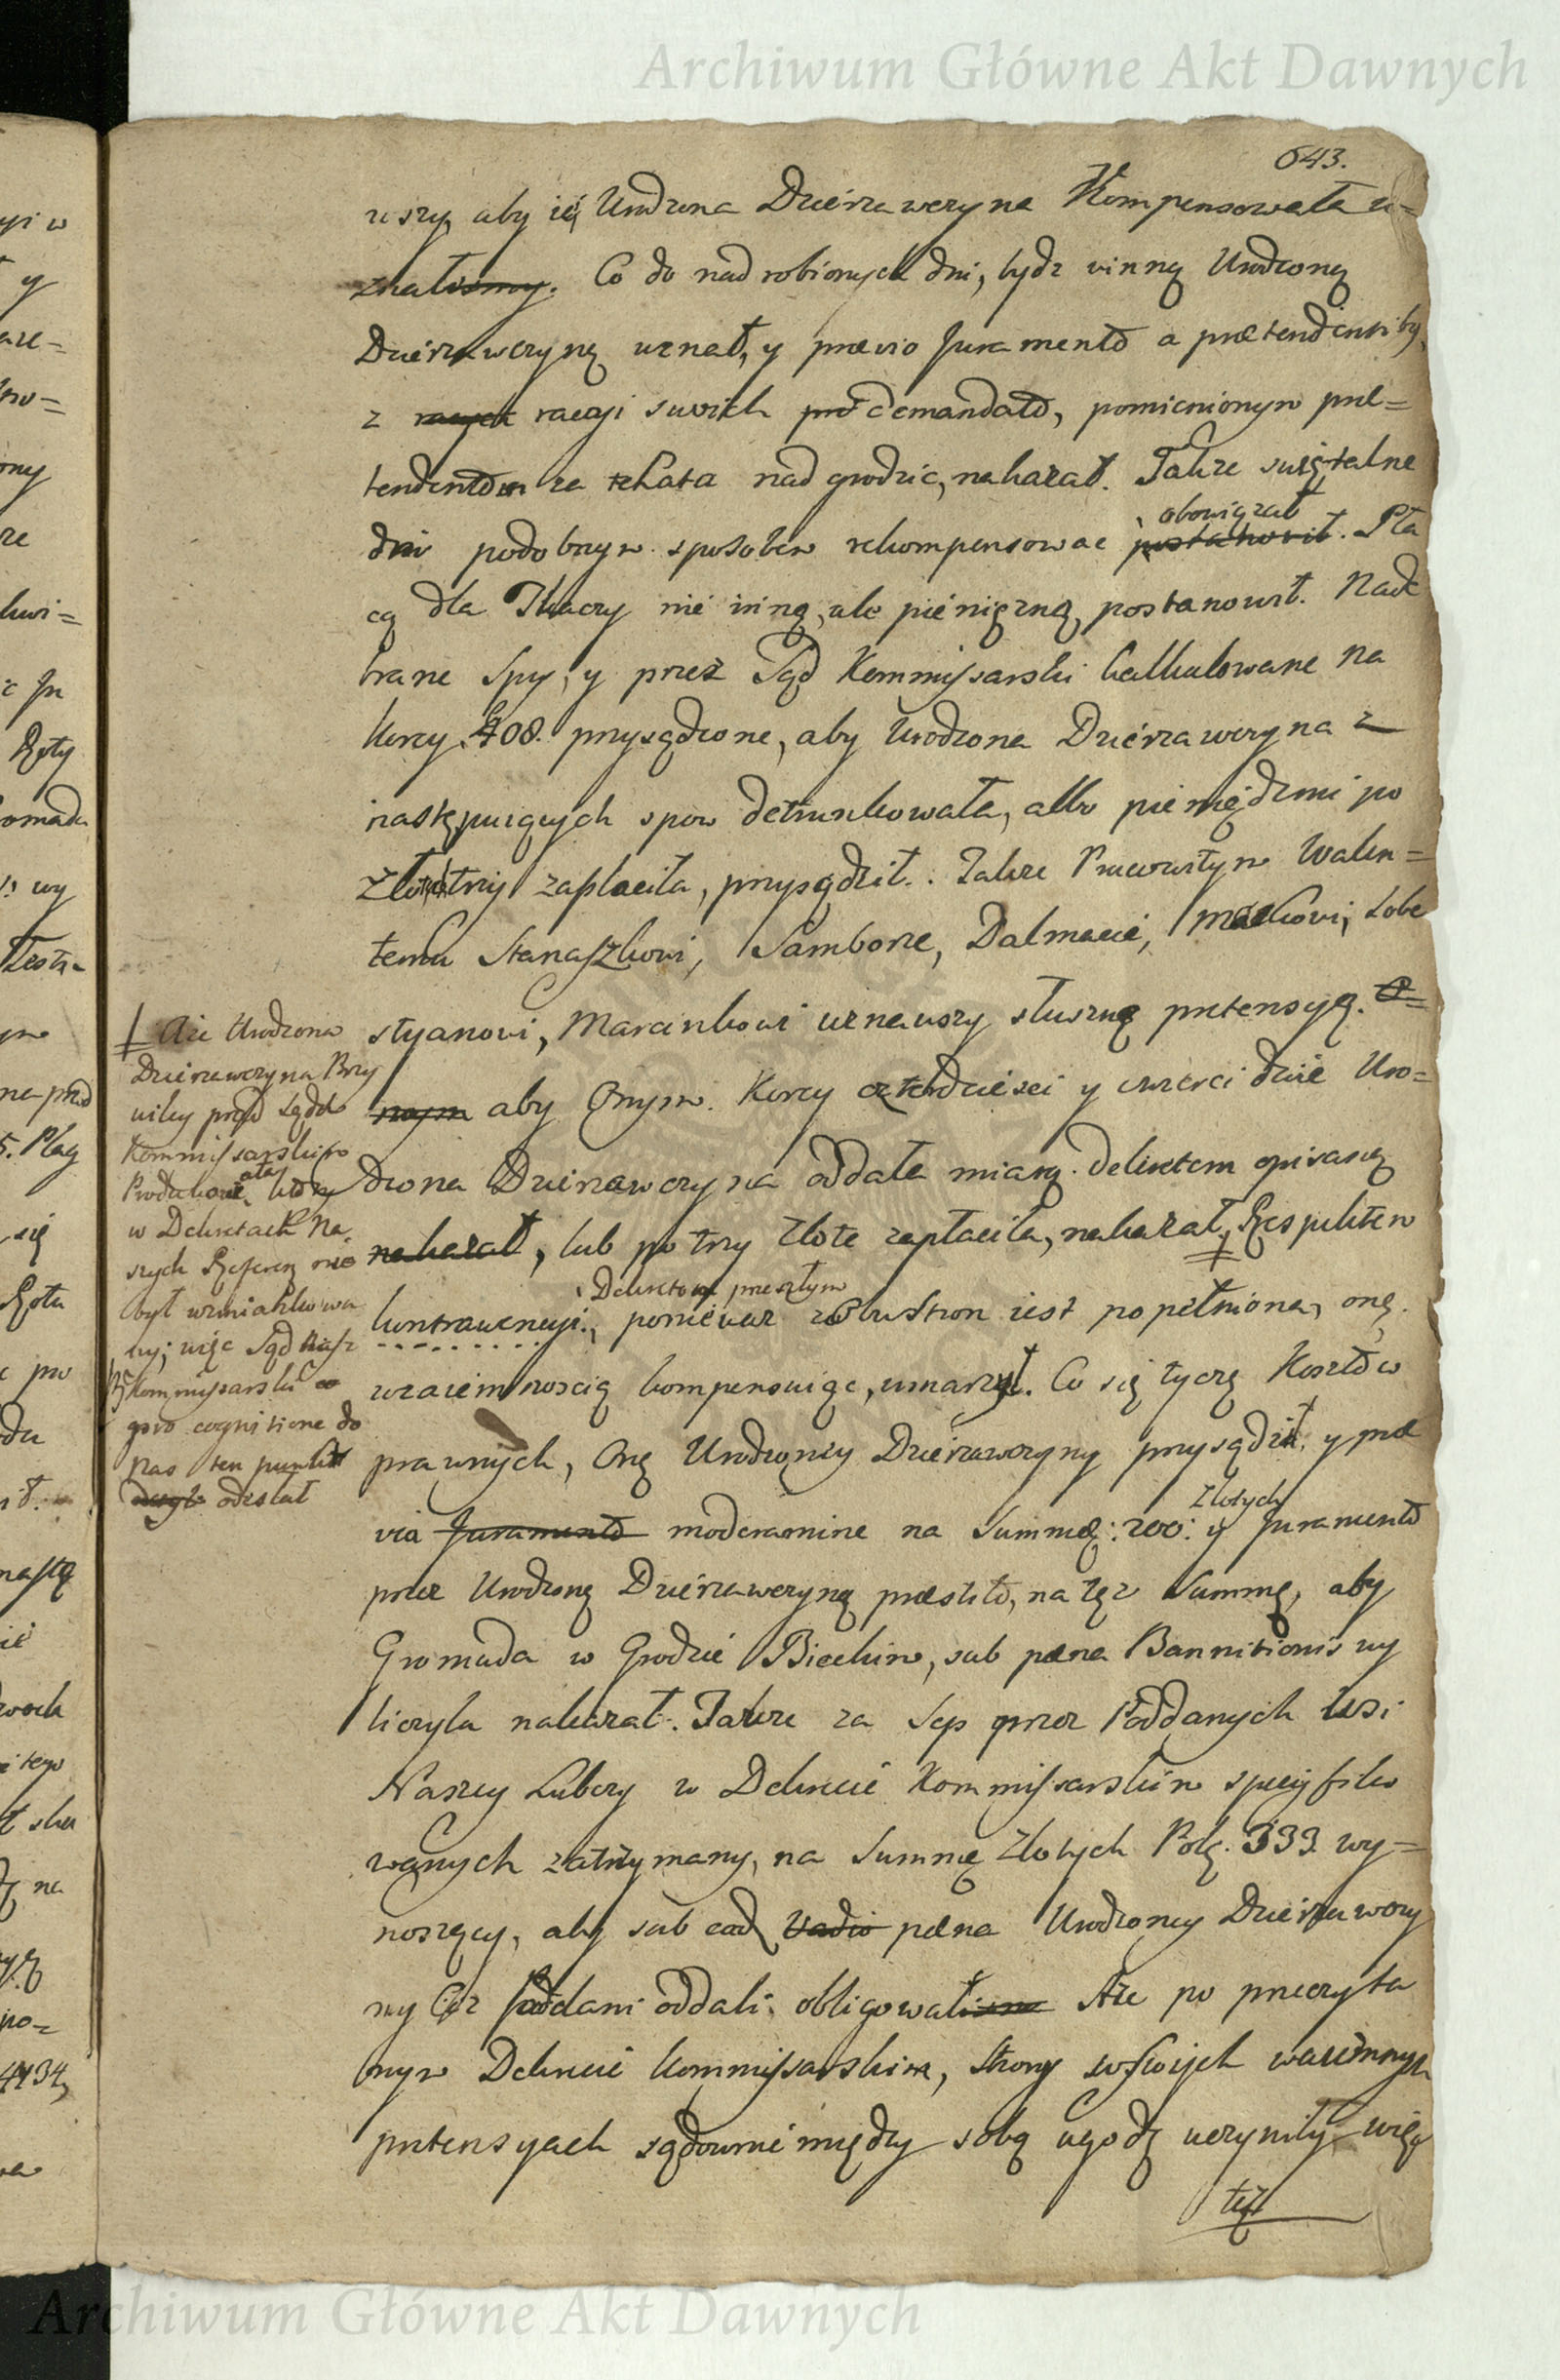 Archiwum Główne Akt Dawnych
643.
wszy, aby ią Urodzona Dzierzawczyna Kompensowała u=
znaliśmy. Co do nad robionych dni, bydz winną Urodzoną
Dzierzawczynę uznał, y prævio Juramento a prætendentiby
z racyi suoich pro demandato, pomienionym præ=
tendentom za lata nadgrodzic, nakazał. Takze swiętalne
dni podobnym sposobem rekompensowac postanowił. Pła
obowiązał
cą dla Tkaczy nie inną, ale pienięzną, postanowił. Nad
brane Spy, y przez Sąd Kommissarski kalkulowane na
Korcy 408. przysądzone, aby Urodzona Dzierzawczyna z
następuiących spow detrunkowała, albo pieniędzmi po
Złot. trzy zapłaciła, przysądził. Takze Pracowitym Walen=
temu Stanaszkowi, Samborze, Dalmacie, Maćkowi, Sobe
styanowi, Marcinkowi uznawszy słuszną pretensyą. O=
nym aby Onym Korcy czterdziesci y czwerci dwie Uro=
dzona Dzierzawczyna oddała miarą dekretem opisaną
nakazał, lub po trzy złote zapłaciła, nakazał, Respektem
kontrawencyi, poniewaz z obu stron iest popełniona, onę
Dekretow przeszłym
wzaiemnoscią kompensuiąc, umarzył. Co się tyczę Kosztow
prawnych, Onę Urodzoney Dzierzawczyny przysądził, y præ
via Juramento moderamine na Summę: 200: y Juramento
Złotych
przez Urodzoną Dzierzawczynę præstito, na tęz Summę, aby
Gromada w Grodzie Bieckim, sub pæna Bannitionis wy
liczyła nakazał. Takze za Sep przez Poddanych Wsi
Naszey Lubczy w Dekrecie Kommissarskim specyfiko
wanych zatrzymany, na Summę Złotych Pols. 333. wy=
noszący, aby sub ead. Vadio pæna Urodzoney Dzierzawczy
ny Ciz Poddani oddali, obligował Aze po przeczyta
nym Dekrecie Kommissarskim, Strony w swoich wzaiemnych
pretensyach sądownie między sobą ugodę uczyniły, więc
też
Aze Urodzona
Dzierzawczyna Przy
wiley przed Sądem
Kommissarskim
Produkowała, ktory
w Dekretach Na
szych Rzeszeń nie
był wzmiankowa
ny; więc Sąd Nasz
Kommissarski
pro cognitione do
nas ten punkt
odesłał
Archiwum Główne Akt Dawnych